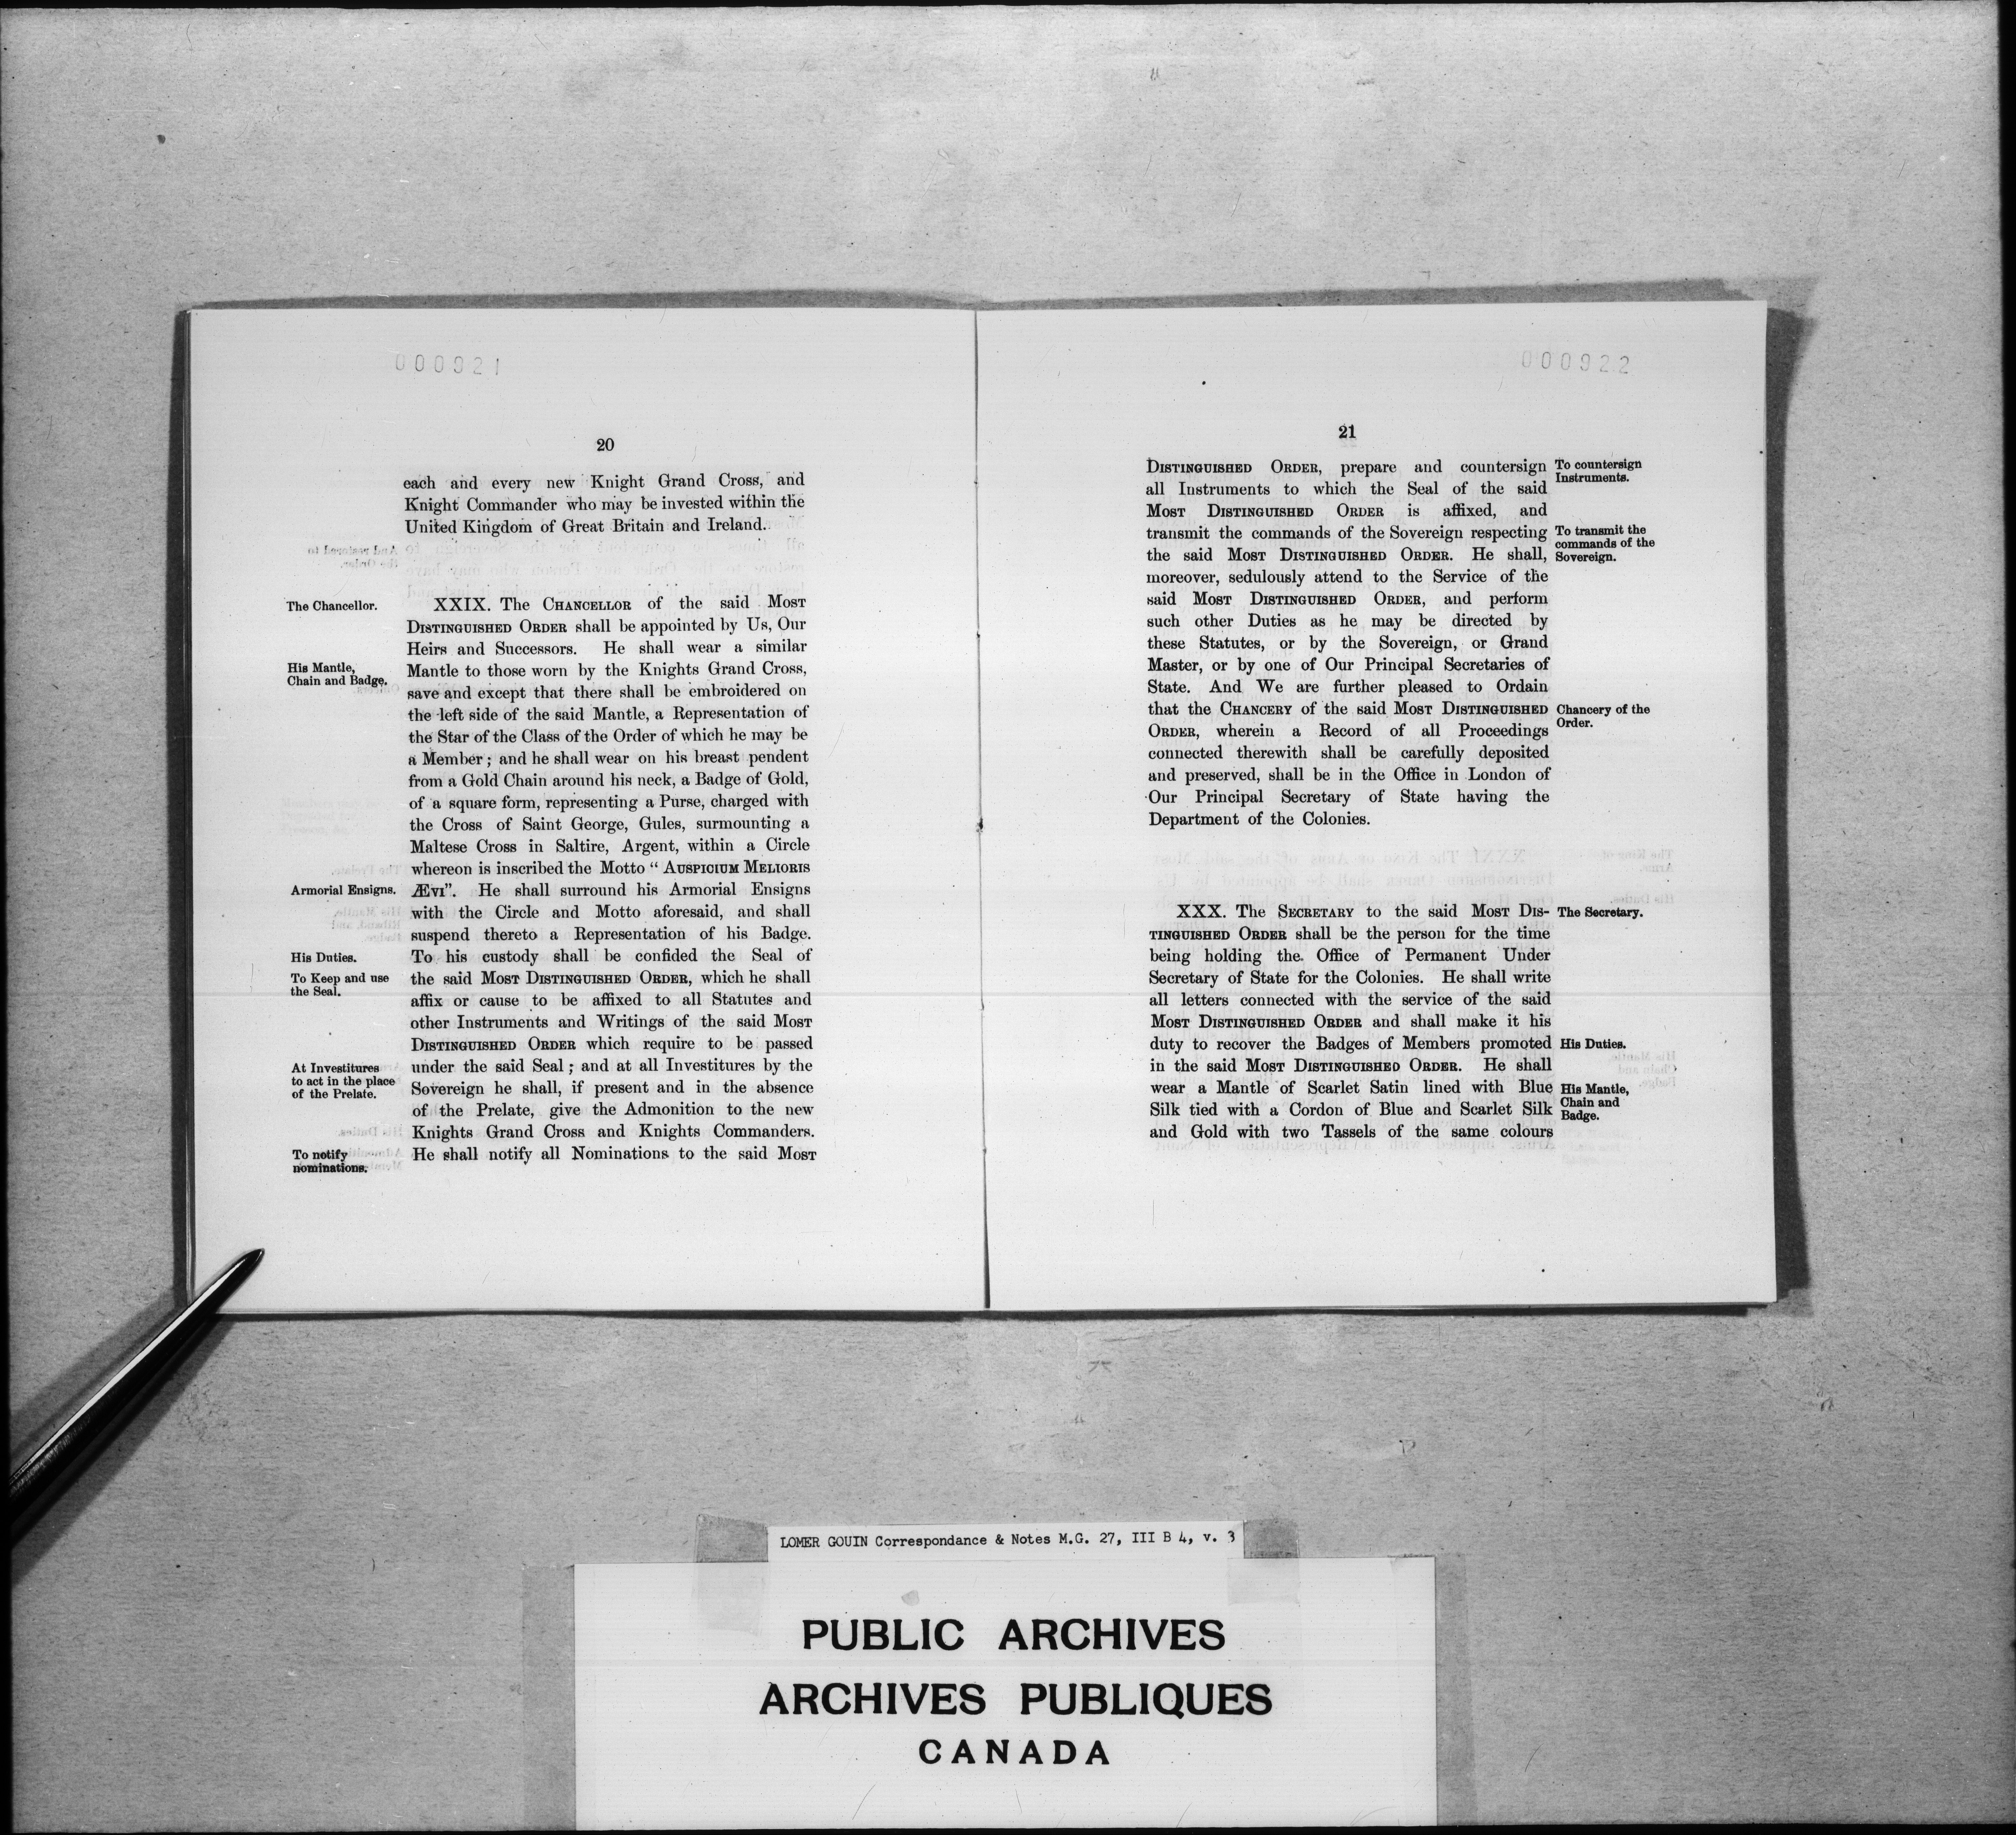 000921
20
each and every new Knight Grand Cross, and
Knight Commander who may be invested within the
United Kingdom of Great Britain and Ireland.
The Chancellor.
XXIX. The CHANCELLOR of the said MOST
DISTINGUISHED ORDER shall be appointed by Us, Our
Heirs and Successors. He shall wear a similar
His Mantle,
Chain and Badge.
Mantle to those worn by the Knights Grand Cross,
save and except that there shall be embroidered on
the left side of the said Mantle, a Representation of
the Star of the Class of the Order of which he may be
a Member; and he shall wear on his breast pendent
from a Gold Chain around his neck, a Badge of Gold,
of a square form, representing a Purse, charged with
the Cross of Saint George, Gules, surmounting a
Maltese Cross in Saltire, Argent, within a Circle
whereon is inscribed the Motto " AUSPICIUM MELIORIS
Armorial Ensigns.
ÆVI". He shall surround his Armorial Ensigns
with the Circle and Motto aforesaid, and shall
suspend thereto a Representation of his Badge.
His Duties.
To his custody shall be confided the Seal of
To Keep and use
the Seal.
the said MOST DISTINGUISHED ORDER, which he shall
affix or cause to be affixed to all Statutes and
other Instruments and Writings of the said MOST
DISTINGUISHED ORDER which require to be passed
At Investitures
to act in the place
of the Prelate.
under the said Seal; and at all Investitures by the
Sovereign he shall, if present and in the absence
of the Prelate, give the Admonition to the new
Knights Grand Cross and Knights Commanders.
To notify
nominations.
He shall notify all Nominations to the said MOST
000922
21
DISTINGUISHED ORDER, prepare and countersign
To countersign
Instruments.
all Instruments to which the Seal of the said
MOST DISTINGUISHED ORDER is affixed, and
transmit the commands of the Sovereign respecting
To transmit the
commands of the
Sovereign.
the said MOST DISTINGUISHED ORDER. He shall,
moreover, sedulously attend to the Service of the
said MOST DISTINGUISHED ORDER, and perform
such other Duties as he may be directed by
these Statutes, or by the Sovereign, or Grand
Master, or by one of Our Principal Secretaries of
State. And We are further pleased to Ordain
that the CHANCERY of the said MOST DISTINGUISHED
Chancery of the
Order.
ORDER, wherein a Record of all Proceedings
connected therewith shall be carefully deposited
and preserved, shall be in the Office in London of
Our Principal Secretary of State having the
Department of the Colonies.
XXX. The SECRETARY to the said MOST DIS-
The Secretary.
TINGUISHED ORDER shall be the person for the time
being holding the Office of Permanent Under
Secretary of State for the Colonies. He shall write
all letters connected with the service of the said
MOST DISTINGUISHED ORDER and shall make it his
duty to recover the Badges of Members promoted
His Duties.
in the said MOST DISTINGUISHED ORDER. He shall
wear a Mantle of Scarlet Satin lined with Blue
His Mantle,
Chain and
Badge.
Silk tied with a Cordon of Blue and Scarlet Silk
and Gold with two Tassels of the same colours
LOMER GOUIN Correspondance & Notes M.G. 27, III B 4, v. 3
PUBLIC ARCHIVES
ARCHIVES PUBLIQUES
CANADA